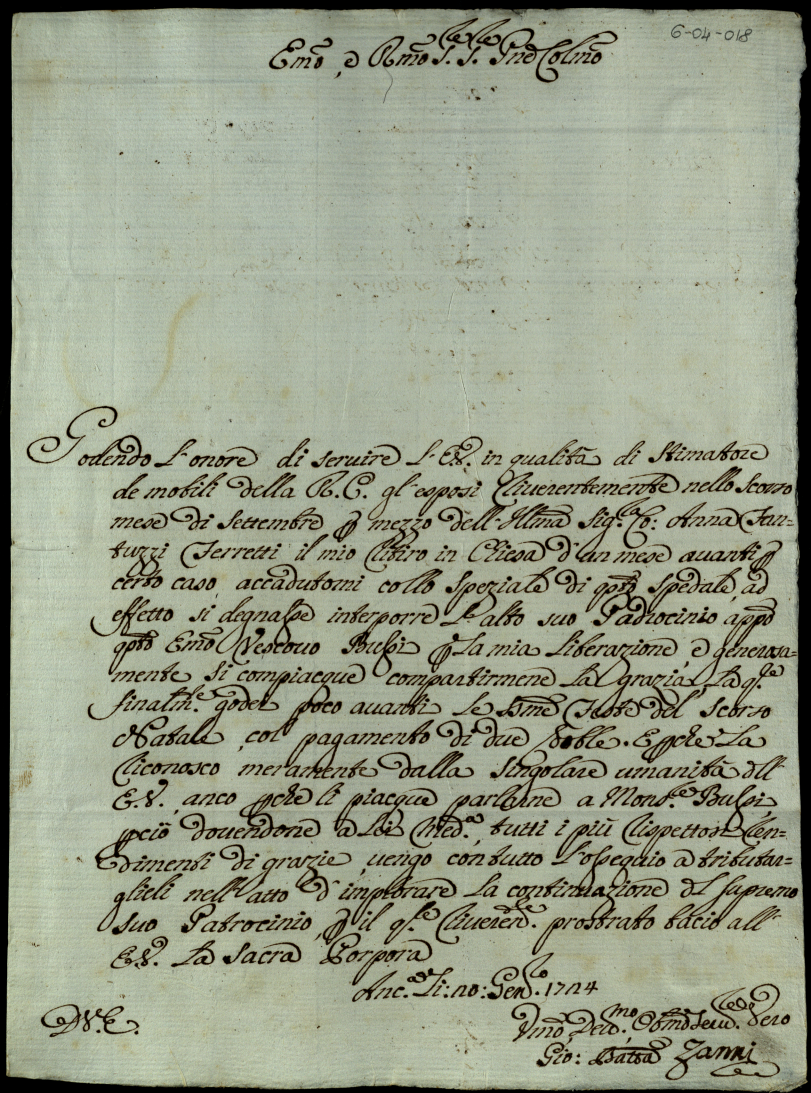 6-04-018
Emo, e Rmo Sig.r Sig.r Pne Colmo
Godendo l'onore di servire l'E.V. in qualità di stimatore
de mobili della R. C. gl'esposi riverentemente nello scorso
mese di settembre p mezzo dell'Illma Sig.ra Co: Anna Fan=
tuzzi Ferretti il mio ritiro in Chiesa d'un mese avanti p
certo caso accadutomi collo speziale di qsto spedale, ad
effetto si degnasse interporre l'alto suo Padrocinio appo
qsto Emo Vescovo Bussi p la mia liberazione, e generosa=
mente si compiacque compartirmene la grazia, la q.le
finalm.e godei poco avanti le SSme Feste del scorso
Natale col pagamento di due doble. E pche la
riconosco meramente dalla singolare umanità dll'
E.V., anco pche li piacque parlarne a Mons.re Bussi,
pciò dovendone a Lei med.a tutti i più rispettosi ren=
dimenti di grazie, vengo con tutto l'ossequio a tributar=
glieli nell'atto d'implorare la continuazione dl supremo
suo Patrocinio, p il q.le riveren.e prostrato bacio all'
E.V. la Sacra Porpora
Anc.a li: 20: Gen.ro 1724
D.V.E.
Vmo, Dev.mo Obmo Serv.re Vero
Gio: Batta Zanni